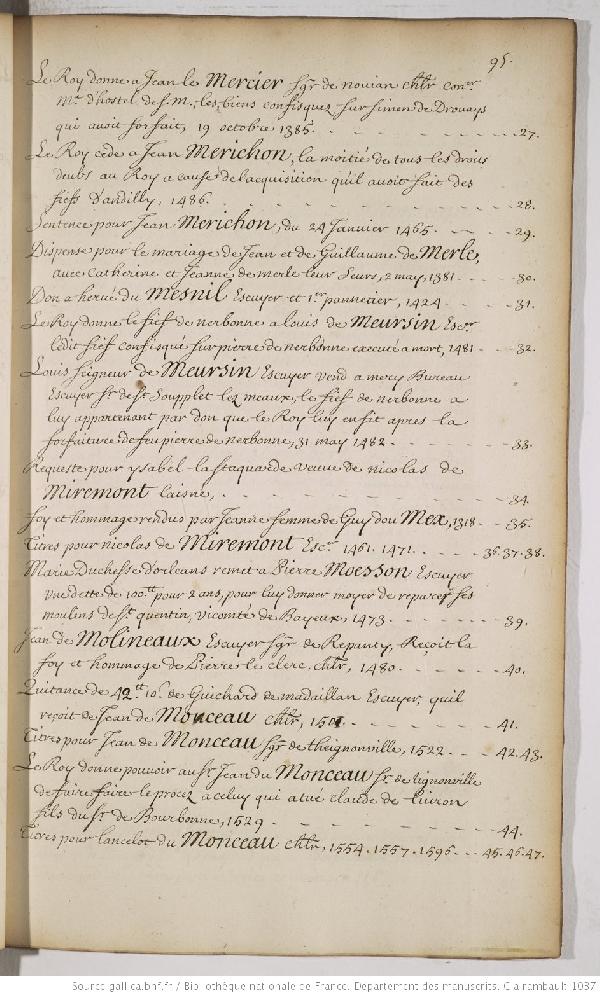 95.
Le Roy donne a Jean le Mercier sgr de novian chlr con.er
M.e d'hostel de s.m., les biens confisquez sur simon de Drouays
qui avoit forfait, 19 octobre 1385. - - - - - - 27.
Le Roy cede a Jean Merichon, la moitié de tous les droits
deubs au Roy a cause de lacquisition quil avoit fait des
fiefs d'andilly, 1486. - - - - - - 28.
Sentence pour Jean Merichon, du 24 Janvier 1465. - - - 29.
Dispense pour le mariage de Jean et de Guillaume de Merle,
avec Catherine et Jeanne de merle leur seurs, 2 may, 1381 - - - 30.
Don a hervé du Mesnil Escuyer et 1.er pannetier, 1424 - - - 31.
Le Roy donne le fief de nerbonne a louis de Meursin Esc.er
ledit fief confisqué sur pierre de nerbonne executé a mort, 1481 - - - 32.
Louis seigneur de Meursin Escuyer vend a mery Bureau
Escuyer sr de st Soupplet lez meaux, le fief de nerbonne a
luy appartenant par don que le Roy luy en fit apres la
forfaiture de feu pierre de nerbonne, 31 may 1482 - - - - - 33.
Requeste pour ysabel la veuve de nicolas de
Miremont laisne, - - - - - - 34.
foy et hommage rendus par Jeanne femme de Guy dou Mex, 1318 - - 35.
Titres pour nicolas de Miremont Esc.er 1461. 1471. - - - - 36. 37. 38.
Marie Duchesse d'orleans remet a Pierre Moesson Escuyer
une dette de 100.tt pour 2 ans, pour luy donner moyen de reparer ses
moulins de s.t quentin, vicomté de Bayeux, 1473. - - - - - 39.
Jean de Molineaux Escuyer sgr de Repanty, Reçoit la
foy et hommage de Pierre le clerc, chlr, 1480. - - - - - 40.
Quitance de 42.tt 10.s de Guichard de madaillan Escuyer, quil
reçoit de Jean de Monceau chlr, - - - - - - 41.
Titres pour Jean de Monceau sgr de theignonville, 1522 - - - 42. 43.
Le Roy donne pouvoir au sr Jean du Monceau sr de tignonville
de faire faire le procez a celuy qui a tué claude de
fils du sr de Bourbonne, 1529 - - - - - - 44.
Titres pour lancelot du Monceau chlr, 1554. 1557. 1596 - - - 45. 46. 47.
Source gallica.bnf.fr / Bibliothèque nationale de France. Département des manuscrits. Clairambault 1087